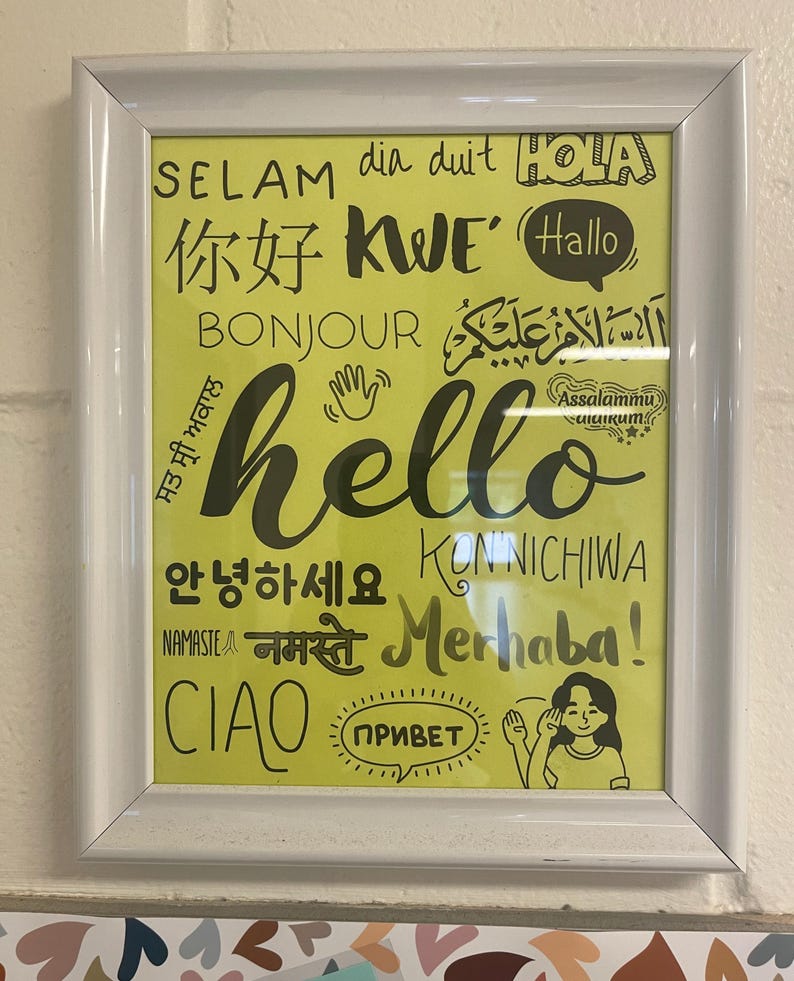 SELAM dia duit HOLA
你好 KWE' Hallo
BONJOUR السَّلَامُ عَلَيْكُمْ
ਸਤ ਸ੍ਰੀ ਅਕਾਲ hello Assalammu alaikum!
KON'NICHIWA
안녕하세요
NAMASTE नमस्ते Merhaba!
CIAO ПРИВЕТ